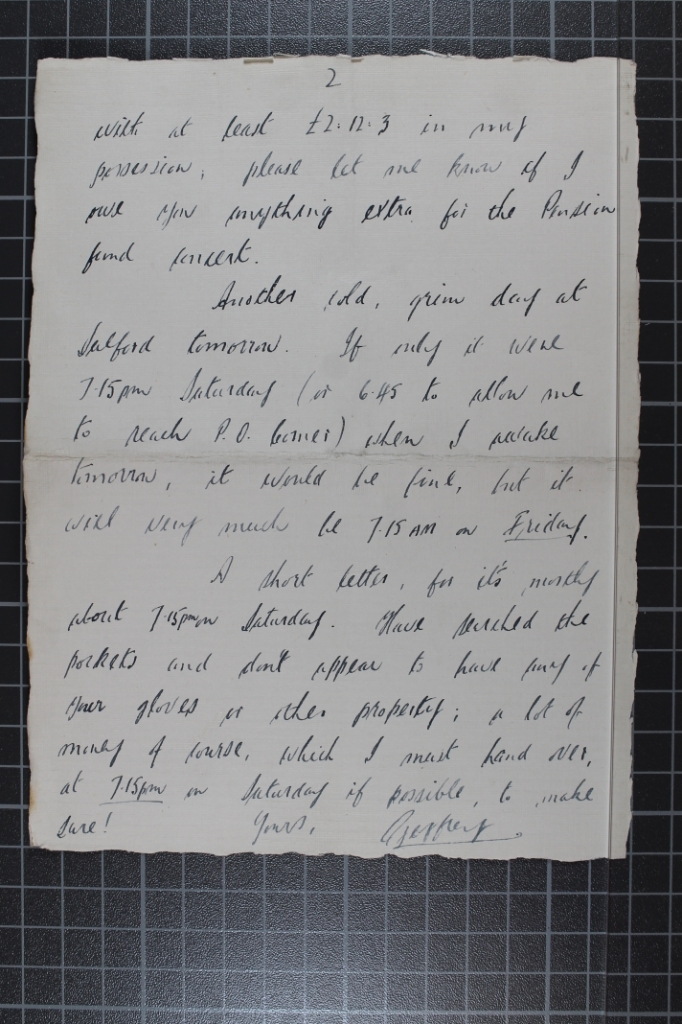 2
with at least £2.12.3 in my
possession; please let me know if I
owe you anything extra for the Pension
fund concert.
Another cold, grim day at
Salford tomorrow. If only it were
7.15pm Saturday (or 6.45 to allow me
to reach P.O. Corner) when I awake
tomorrow, it would be fine, but it
will very much be 7.15 AM on Friday.
A short letter, for it's mostly
about 7.15pm on Saturday. Have searched the
pockets and don't appear to have any of
your gloves or other property; a lot of
money of course, which I must hand over,
at 7.15pm on Saturday if possible, to make
sure! Yours, Geoffrey.